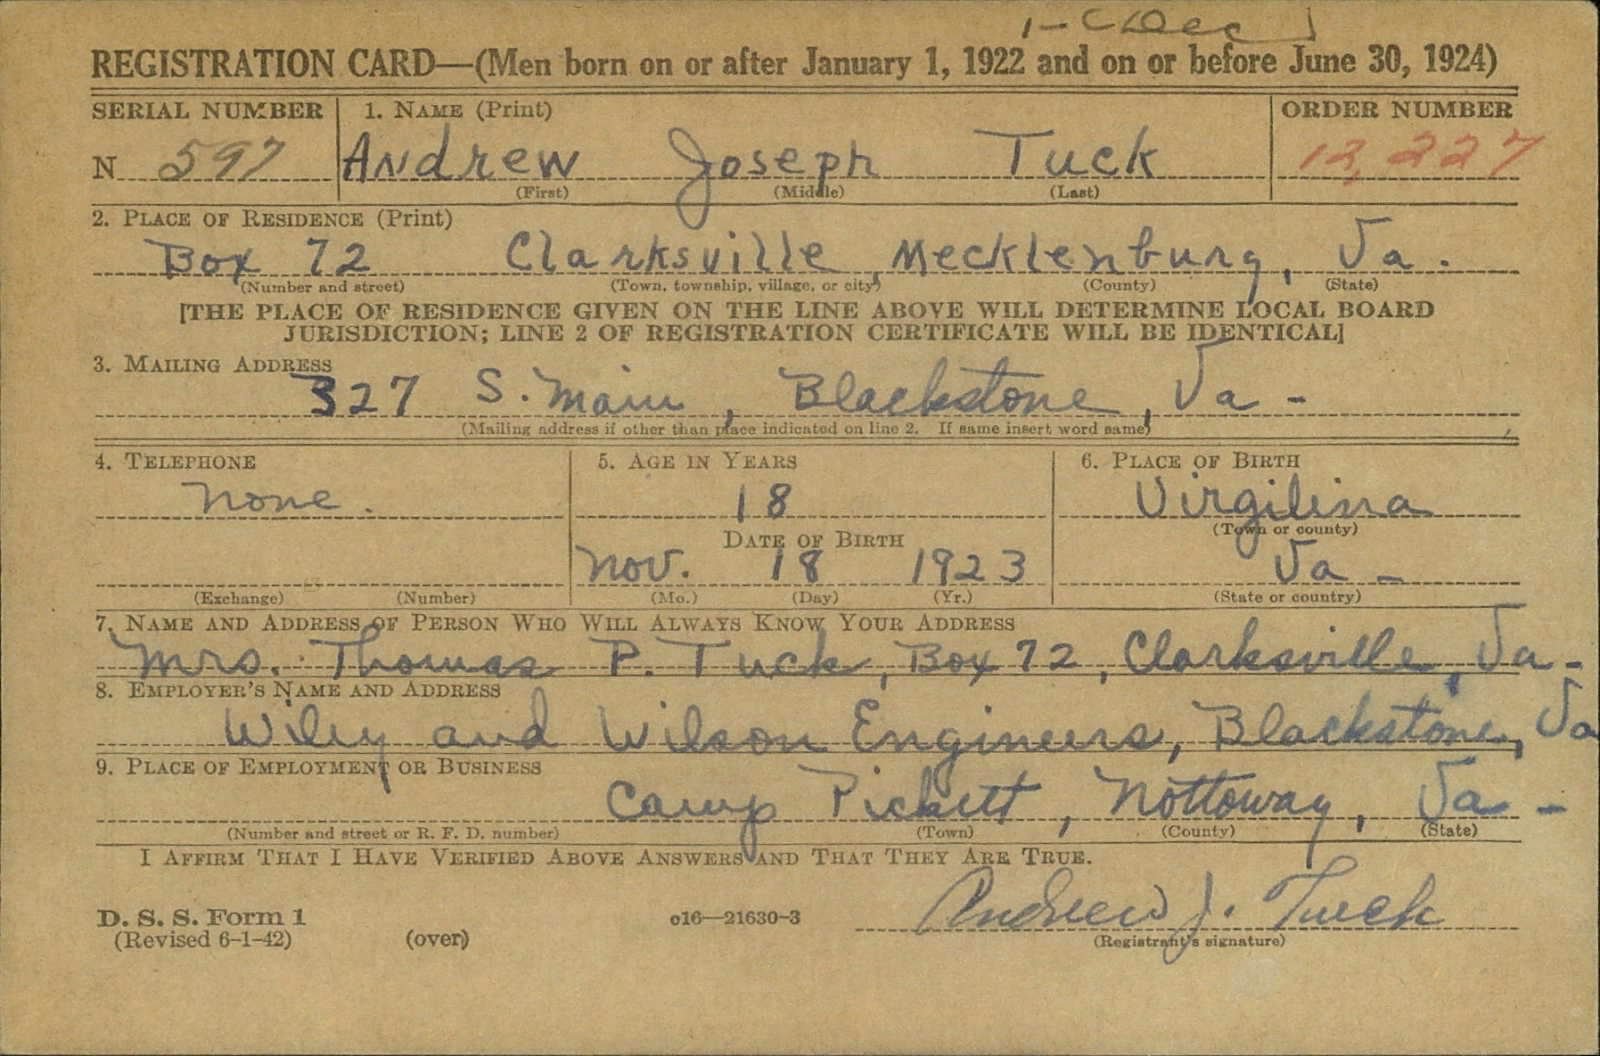 1-C (Dec)
REGISTRATION CARD—(Men born on or after January 1, 1922 and on or before June 30, 1924)
SERIAL NUMBER 1. NAME (Print) ORDER NUMBER
N 597 Andrew Joseph Tuck 12,227
(First) (Middle) (Last)
2. PLACE OF RESIDENCE (Print)
Box 72 Clarksville, Mecklenburg, Va.
(Number and street) (Town, township, village, or city) (County) (State)
[THE PLACE OF RESIDENCE GIVEN ON THE LINE ABOVE WILL DETERMINE LOCAL BOARD
JURISDICTION; LINE 2 OF REGISTRATION CERTIFICATE WILL BE IDENTICAL]
3. MAILING ADDRESS
327 S. Main, Blackstone, Va -
(Mailing address if other than place indicated on line 2. If same insert word same)
4. TELEPHONE 5. AGE IN YEARS 6. PLACE OF BIRTH
None. 18 Virgilina
(Town or county)
DATE OF BIRTH
Nov. 18 1923 Va -
(Exchange) (Number) (Mo.) (Day) (Yr.) (State or country)
7. NAME AND ADDRESS OF PERSON WHO WILL ALWAYS KNOW YOUR ADDRESS
Mrs. Thomas P. Tuck, Box 72, Clarksville, Va -
8. EMPLOYER'S NAME AND ADDRESS
Wiley and Wilson Engineers, Blackstone, Va
9. PLACE OF EMPLOYMENT OR BUSINESS
Camp Pickett, Nottoway, Va -
(Number and street or R. F. D. number) (Town) (County) (State)
I AFFIRM THAT I HAVE VERIFIED ABOVE ANSWERS AND THAT THEY ARE TRUE.
D. S. S. Form 1 c16—21630-3 Andrew J. Tuck
(Revised 6-1-42) (over) (Registrant's signature)